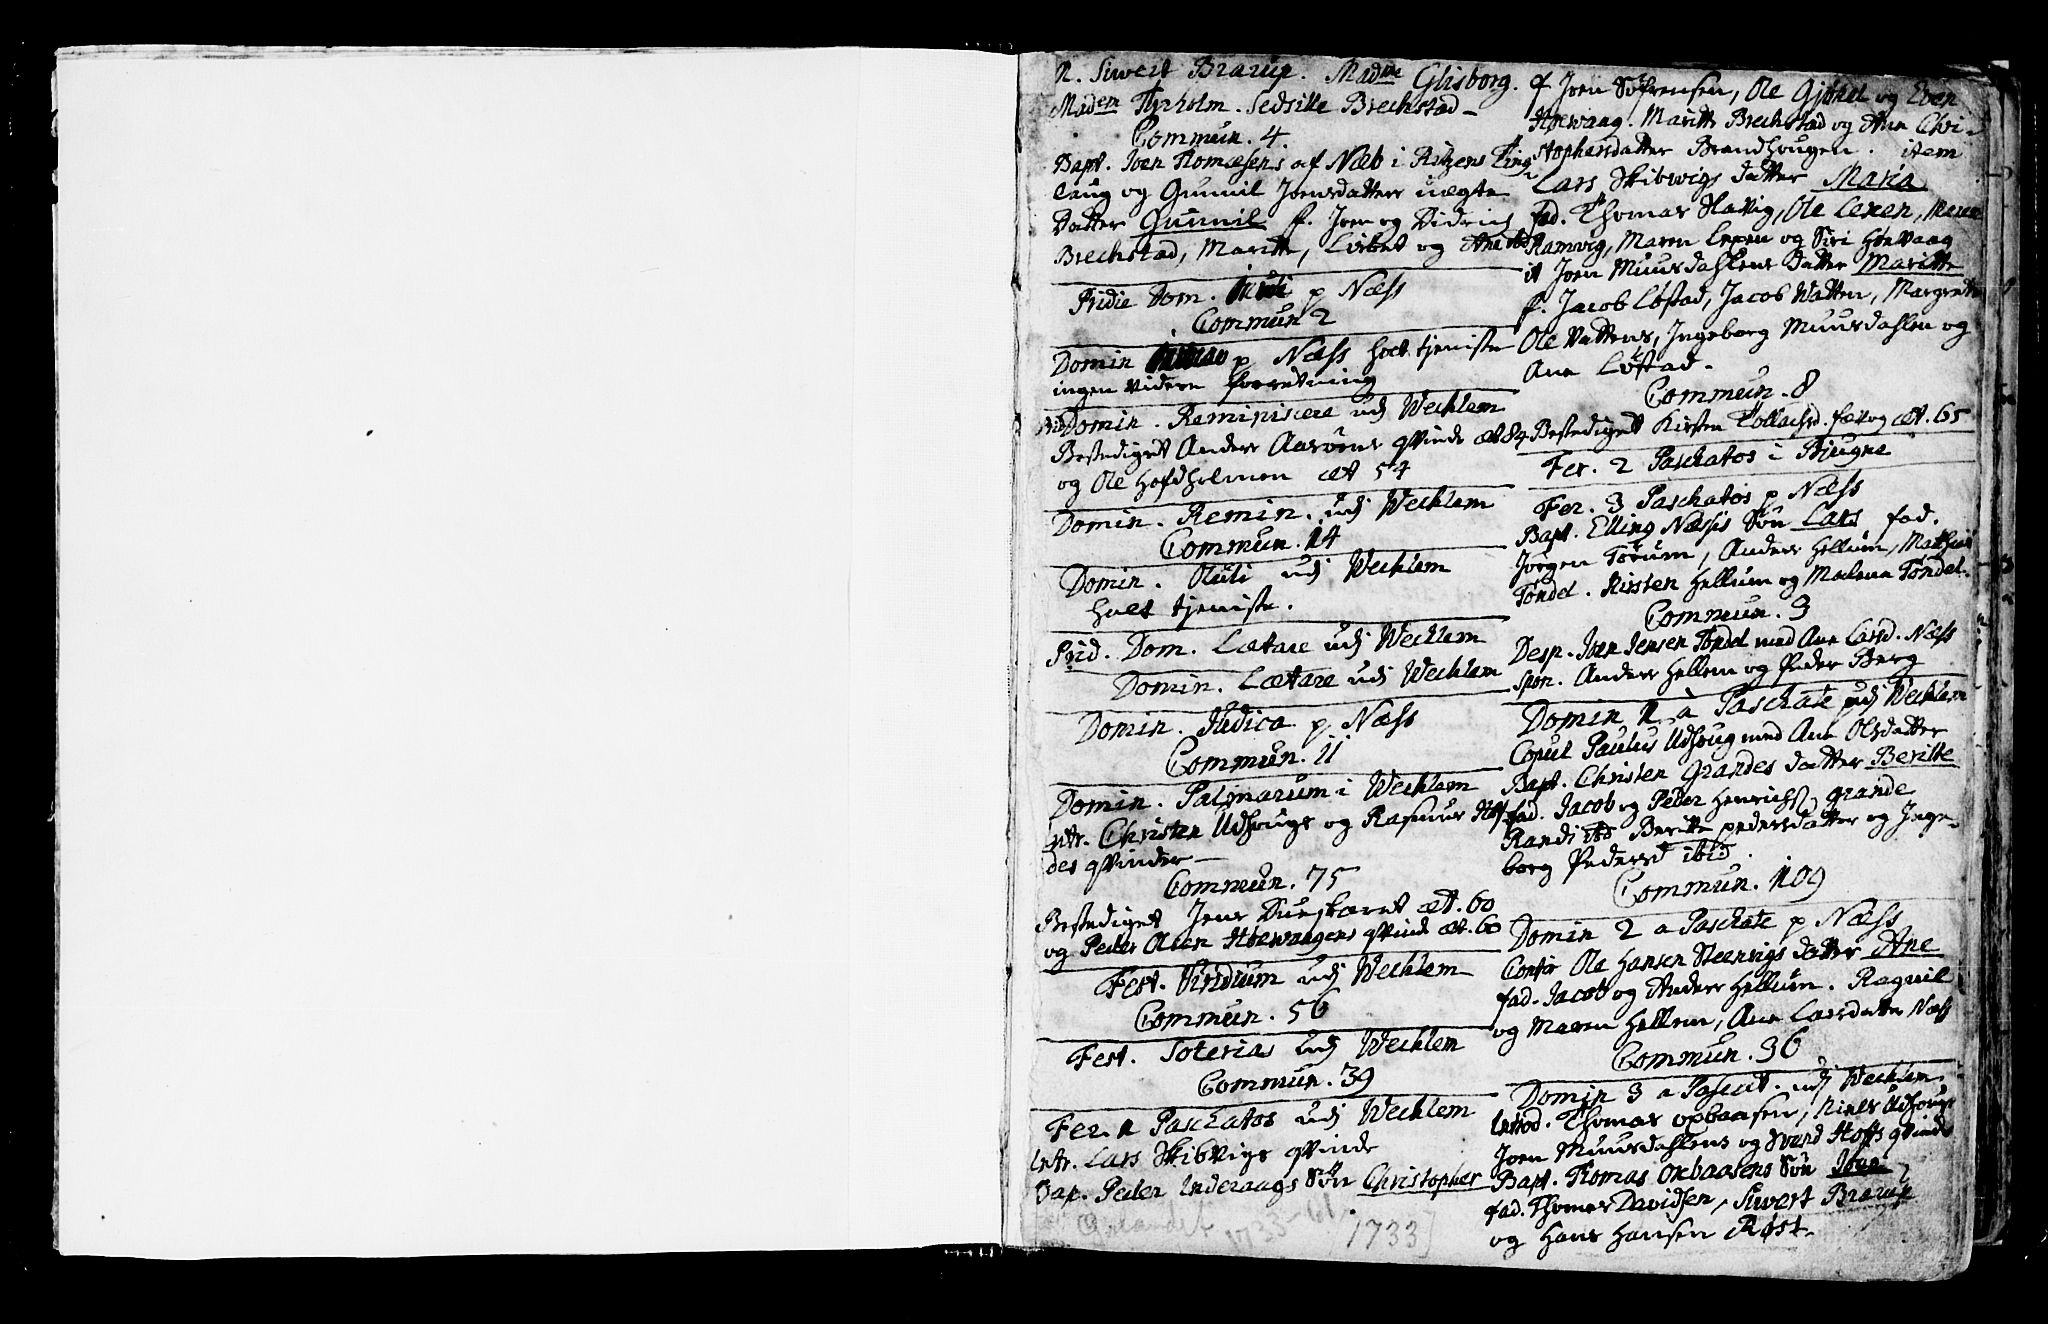 N. Siwert Brarup. Madme Glisborg.
Madem Thrholm. Sedsille Brechstad
Commun. 4.
Bapt. Joen Thomæsens af Næb i Ritzens Ting-
laug og Gunnil Joensdatters uægte
Datter Gunnil f. Joen og Didrich
Brechstad, Maritte, Lisbet og Ane ibd
Pridie Dom. p Næss
Commun 2
Domin p Næss holt tjeniste
ingen videre forretning
Prid Domin. Reminiscere udj Wechlem
Bestediget Anders Aasøens qvinde æt 84
og Ole Hofdholmen æt 54
Domin. Remin. udj Wechlem
Commun. 14
Domin. Oculi udj Wechlem
holt tjeniste.
Prid. Dom. Lætare udj Wechlem
Domin. Lætare udj Wechlem
Domin. Judica p Næss
Commun. 11
Domin. Palmarum i Wechlem
Intr. Christen Udhougs og Rasmus Hof-
des qvinder
Commun. 75
Bestediget Jens Dueskaret æt. 60
og Peder Olsen Høewangens qvinde æt. 60
Fest. Viridium udj Wechlem
Commun. 56
Fest. Soterias udj Wechlem
Commun. 39
Fer. 1 Paschatos udj Wechlem
Intr. Lars Skibvigs qvinde
Bap. Peder Inderaags Søn Christopher
Ørlandet 1733-61
1733]
f Joen Søfrensen, Ole Gjøhel og Even
Høewaag. Maritte Brechstad og Ane Chri-
stophersdatter Brandhougen. item
Lars Skibwigs datter Maria
fad. Thomas Havig, Ole Lexen, Maren
Ramvig, Maren Lexen og Siri Høevaag
it Joen Muusdahlens Datter Maritte
f. Jacob Løstad, Jacob Watten, Margrette
Ole Vattens, Ingeborg Muusdahlen og
Ane Løstad.
Commun. 8
Bestediget Kirsten Tollachsd. fattog æt. 65
Fer. 2 Paschatos i Bjugne
Fer. 3 Paschatos p Næss
Bapt. Elling Næssis Søn Lars fad.
Jørgen Torum, Anders Hellum, Mathias
Tøndel. Kirsten Hellum og Malena Tøndel.
Commun. 3
Desp. Joen Jensen Tøndel med Ane Larsd. Næss
Spon. Anders Hellem og Peder Berg
Domin 1 a Paschate udj Wechlem
Copul Paulus Udhoug med Ane Olsdatter
Bapt. Christen Grandes datter Beritte
fad. Jacob og Peder Henrichs. grande
Randi ibd Beritte pedersdatter og Inge-
borg Pedersd ibid.
Commun. 109
Domin 2 a Paschate p Næss
Confir Ole Hansen Steenvigs datter Ane
fad. Jacob og Anders Hellum. Ragnil
og Maren Hellem, Ane Larsdatter Næss
Commun. 36
Domin 3 a Pascat. udj Wechlem
Introd. Thomas opbaasen, Niels Udhougs
Joen Muusdahlens og Svend Hoffs qvinde
Bapt. Thomas Oxbaasens Søn Joen
fad. Thomas Davidsen, Siwert Brarup
og Hans Hansen Røst.